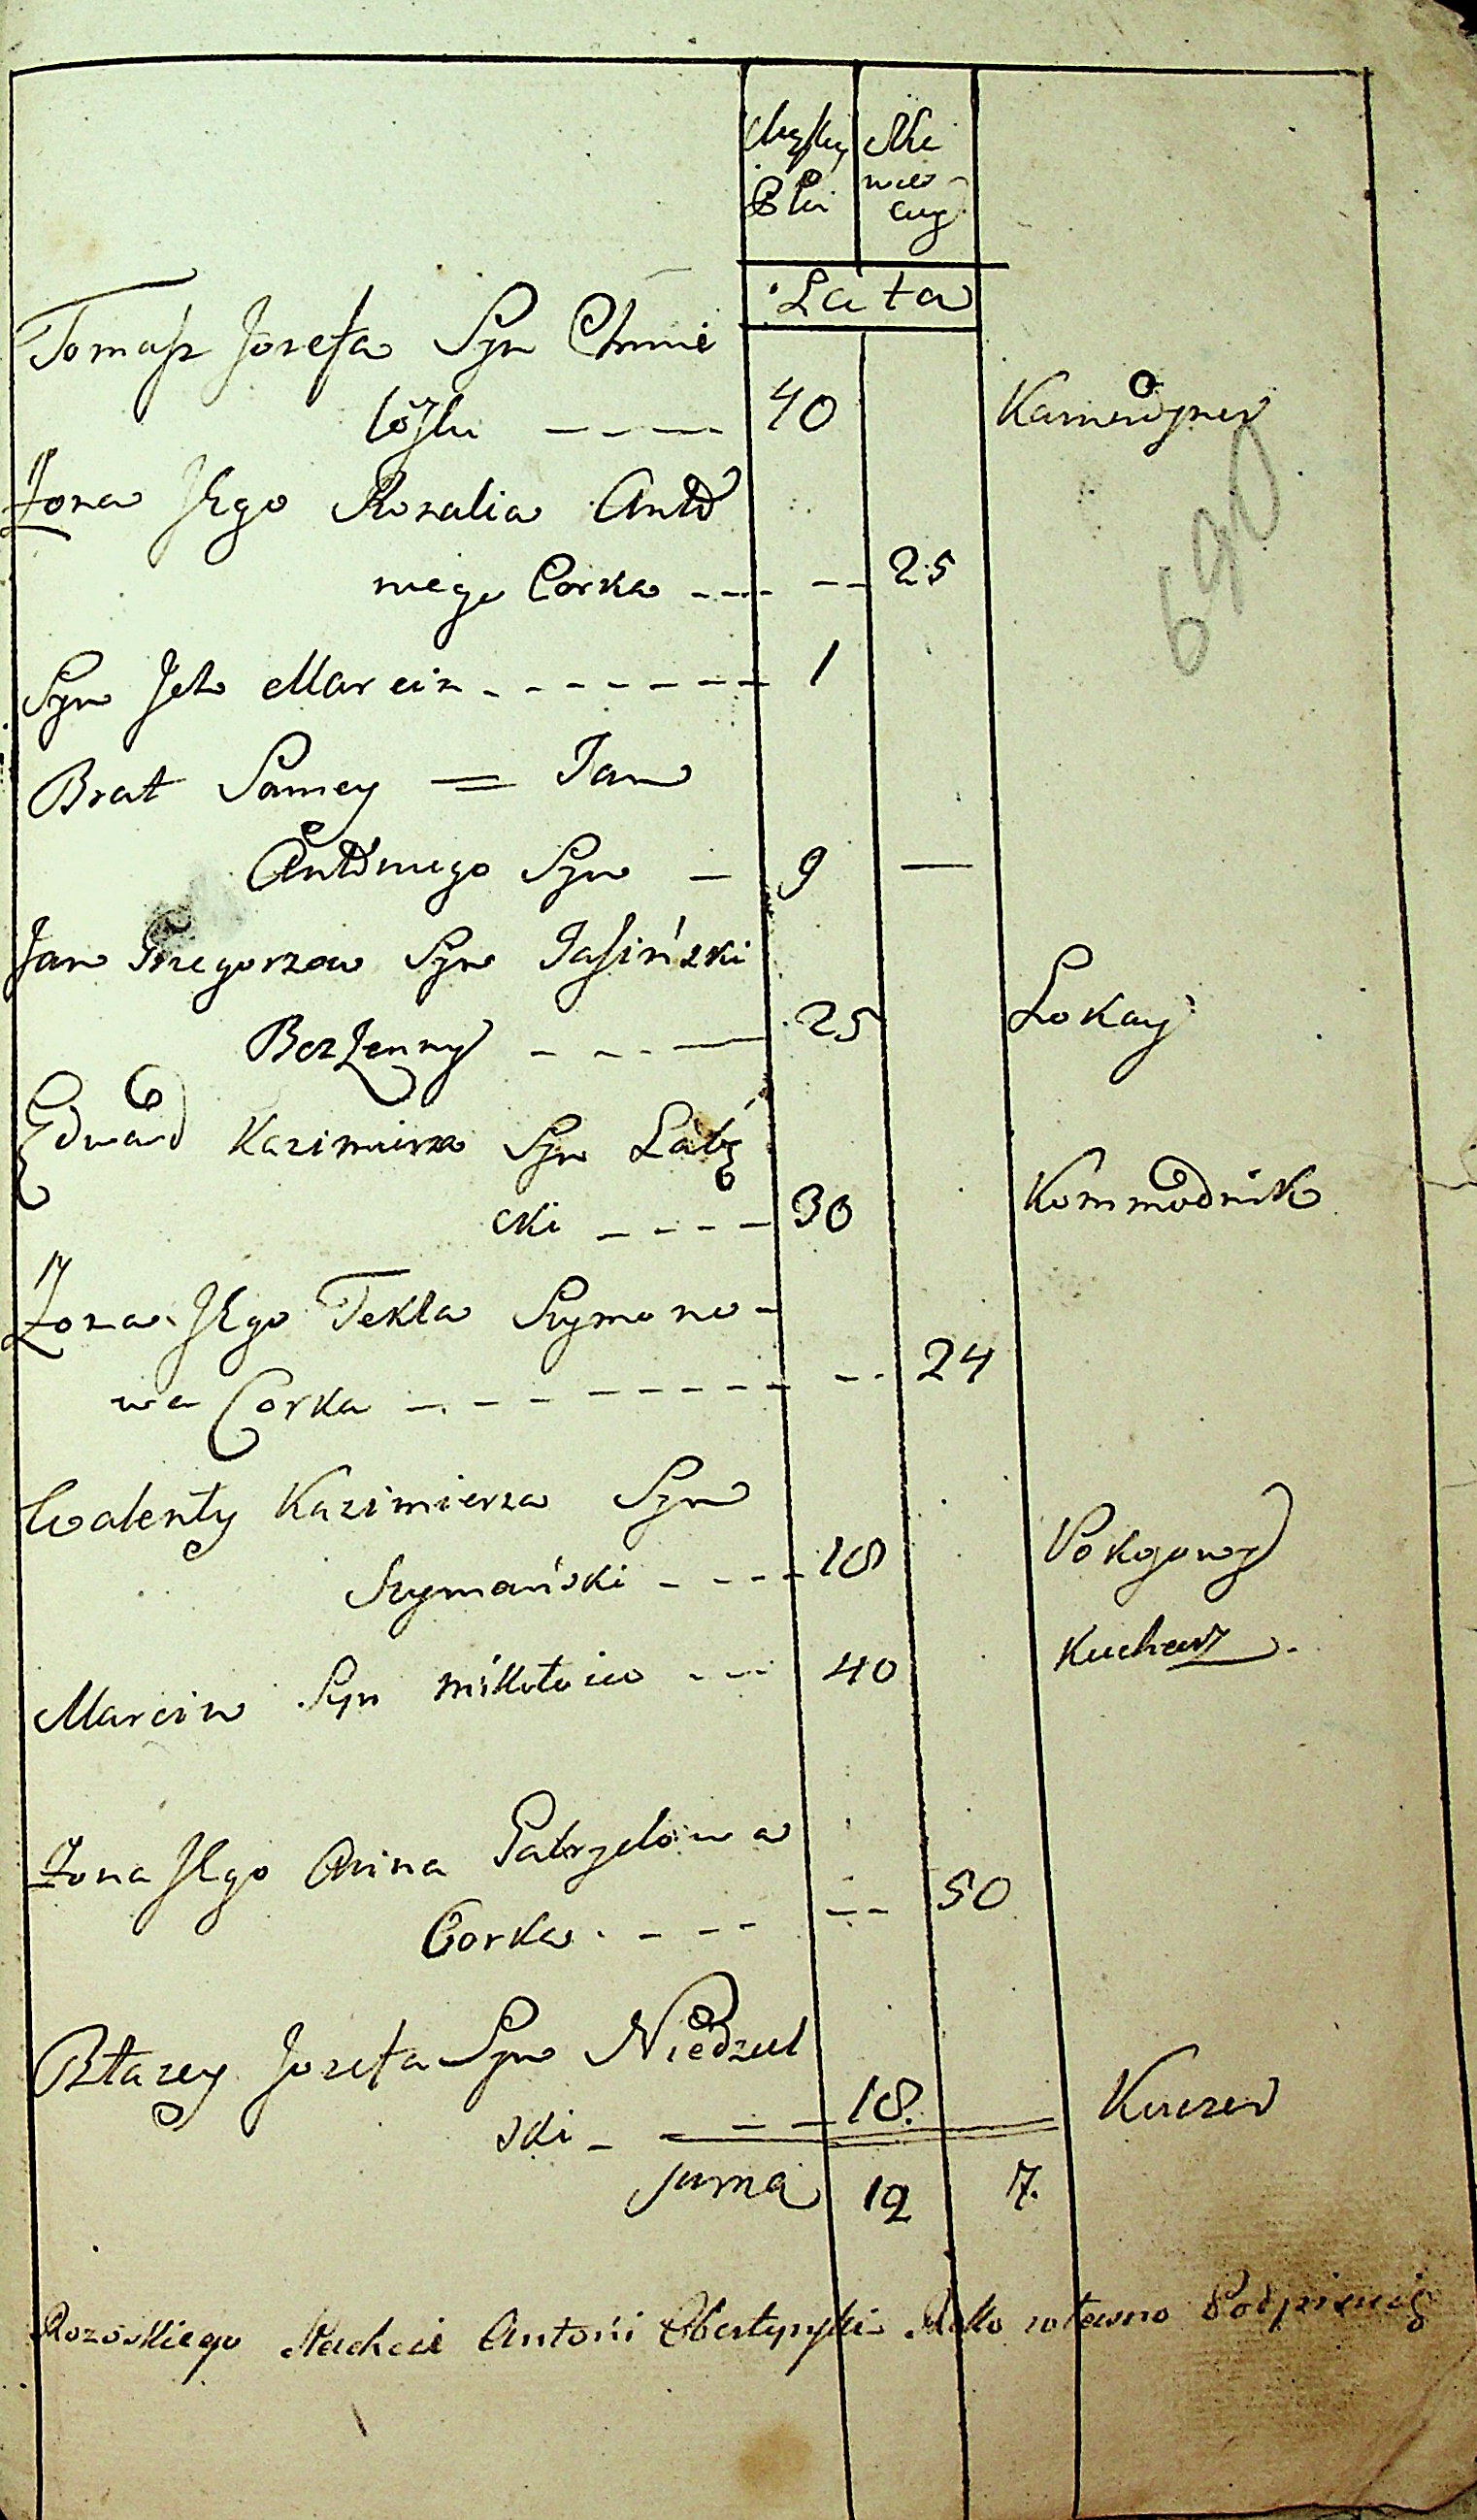 Męsky Nie
Płci wieś
ciey
Lata
Tomasz Jozefa Syn Chmie
lowski ---- 40 Kamerdyner
Żona Jego Rozalia Anto
niego Corka ---- -- 25
Syn Jch Marcin -------- 1
Brat Samey = Jan
Antoniego Syn - 9 —
Jan Grzegorzow Syn Jasinski
Bezżenny ---- 25 Lokay
Edward Kazimierza Syn
cki ---- 30 Kommodnik
Żona Jego Tekla Szymono-
wa Corka --------- -- 24
Walenty Kazimierza Syn
Szymański ---- 18 Pokojowy
Marcin Syn Mikołaia --- 40 Kucharz
Żona Jego Anna Gabryelowa
Corka ---- -- 50
Błazey Jozefa Syn Niedziel
ski - --- 18. Kuczer
suma 12 7.
Antoni ręką własną Podpisuię
690